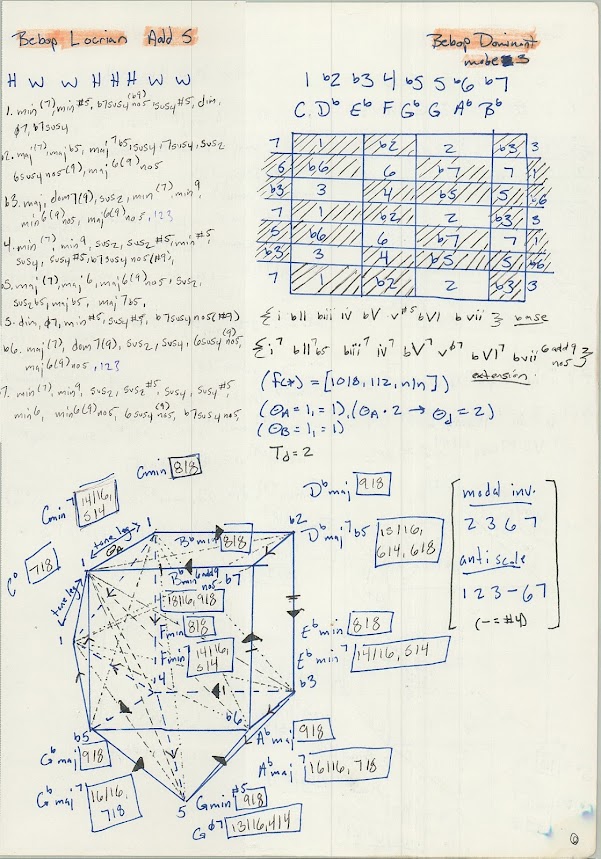 Bebop Locrian Add 5
H W W H H H W W
1. min(7), min#5, b7sus4(b9)no5, sus4#5, dim,
ø7, b7sus4
b2. maj(7), majb5, maj7b5, sus4, 7sus4, sus2
6sus4no5(9), maj6(9)no5
b3. maj, dom7(9), sus2, min(7), min9,
min6(9)no5, maj6(9)no5, 123
4. min(7), min9, sus2, sus2#5, min#5,
sus4, sus4#5, b7sus4no5(#9),
b5. maj(7), maj6, maj6(9)no5, sus2,
sus2b5, majb5, maj7b5,
5. dim, ø7, min#5, sus4#5, b7sus4no5(#9)
b6. maj(7), dom7(9), sus2, sus4, 6sus4(9)no5,
maj6(9)no5, 123
b7. min(7), min9, sus2, sus2#5, sus4, sus4#5,
min6, min6(9)no5, 6sus4(9)no5, b7sus4no5,
Bebop Dominant
mode 3
1 b2 b3 4 b5 5 b6 b7
C Db Eb F Gb G Ab Bb
7 1 b2 2 b3 3
5 b6 6 b7 7 1
b3 3 4 b5 5 b6
7 1 b2 2 b3 3
5 b6 6 b7 7 1
b3 3 4 b5 5 b6
7 1 b2 2 b3 3
{i bII biii iv bV v#5 bVI bvii} base
{i7 bII7b5 biii7 iv7 bV7 vø7 bVI7 bvii6add9no5}
extension
(f(x)) = [1018, 112, n|n])
(ΘA = 1, = 1), (ΘA · 2 → Θd = 2)
(ΘB = 1, = 1)
Td = 2
Cmin 818
Cmin7 14116, 514
C° 718
tone leg
ΘA
tone leg
1 1 1
Bbmin 818
b2
Bbmin6add9no5 b7
13116, 918
Fmin 818
Fmin7 14116, 514
4
Dbmaj 918
Dbmaj7b5 15116, 614, 618
Ebmin 818
Ebmin7 14116, 514
b3
b6
b5
Gbmaj 918
Gbmaj7 16116, 718
5
Gmin#5 918
Gø7 13116, 414
Abmaj 918
Abmaj7 16116, 718
modal inv.
2 3 6 7
antiscale
1 2 3 - 6 7
(- = #4)